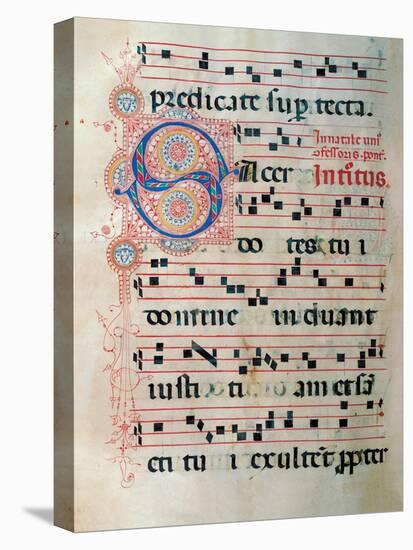 predicate sup tecta.
In natale uni9
ɔfessoris. pont.
Sacer Introitus.
do tes tu i
domine induant
iusti ti am et sā
cti tu i exultēt ꝓpter